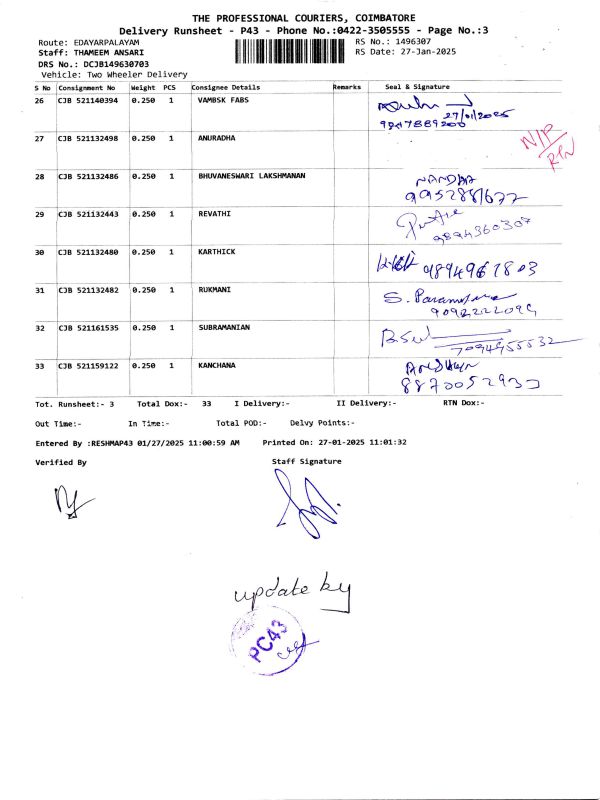 THE PROFESSIONAL COURIERS, COIMBATORE
Delivery Runsheet - P43 - Phone No.:0422-3505555 - Page No.:3
Route: EDAYARPALAYAM RS No.: 1496307
Staff: THAMEEM ANSARI RS Date: 27-Jan-2025
DRS No.: DCJB149630703
Vehicle: Two Wheeler Delivery
S No Consignment No Weight PCS Consignee Details Remarks Seal & Signature
26 CJB 521140394 0.250 1 VAMBSK FABS
27/01/2025
9847889200
27 CJB 521132498 0.250 1 ANURADHA N/P
RTN
28 CJB 521132486 0.250 1 BHUVANESWARI LAKSHMANAN NANDHA
9952881677
29 CJB 521132443 0.250 1 REVATHI
9894360307
30 CJB 521132480 0.250 1 KARTHICK 9894967803
31 CJB 521132482 0.250 1 RUKMANI
32 CJB 521161535 0.250 1 SUBRAMANIAN
7094455532
33 CJB 521159122 0.250 1 KANCHANA
Tot. Runsheet:- 3 Total Dox:- 33 I Delivery:- II Delivery:- RTN Dox:-
Out Time:- In Time:- Total POD:- Delvy Points:-
Entered By :RESHMAP43 01/27/2025 11:00:59 AM Printed On: 27-01-2025 11:01:32
Verified By Staff Signature
update by
PC43